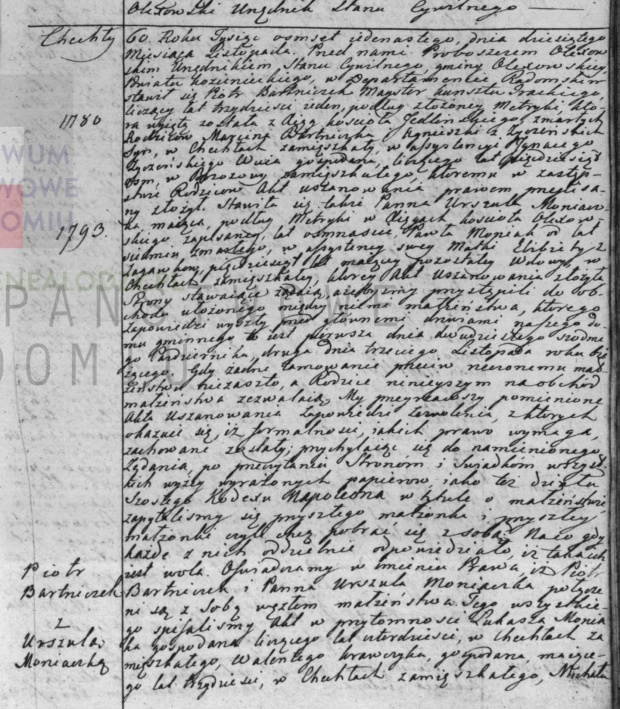 Olexowski Urzędnik Stanu Cywilnego
Chechły
60. Roku Tysiąc osmset iedenastego, dnia dziesiątego
Miesiąca Listopada. Przed nami Proboszczem Olexow-
skim Urzędnikiem, Stanu Cywilnego gminy Olexowskiey,
Powiatu Kozienickiego, w Departamencie Radomskim
stawił się Piotr Bartniczek Mayster kunsztu Tkackiego,
liczący lat trzydzieści ieden, podług złożoney Metryki któ-
1780
ra wyięta została z Xiąg kościoła Jedleńskiego, zmarłych
Rodziców Marcina Bartniczka i Agnieszki z Zyczeńskich
Syn, w Chechłach zamięszkały, w assystencyi Ignacego
Zyczeńskiego Wuia gospodarza, liczącego lat pięćdziesiąt
Osm, w Brzozowy zamięszkałego, któremu w zastęp-
stwie Rodziców Akt uszanowania prawem przepisa-
ny złożył. Stawiła się także Panna Urszula Moniacz-
1793.
ka maiąca, podług Metryki w Xięgach kościoła Olexow-
skiego zapisaney, lat osmnaście, Pawła Moniak od lat
siedmiu zmarłego, w assystency swey Matki Elżbiety z
pięćdziesiąt lat maiącey pozostałey Wdowy, w
Chechłach zamięszkałey, którey Akt Uszanowania złożyła
Strony stawaiące żądaią, ażebyśmy przystąpili do ob-
chodu ułożonego między niemi małżeństwa, którego
zapowiedzi wyszły przed głównemi drzwiami naszego do-
mu gminnego to iest pierwsza dnia dwudziestego siodme-
go Października, druga dnia trzeciego Listopada roku bie-
żącego. Gdy żadne tamowanie przeciw rzeczonemu mał-
żeństwu niezaszło, a Rodzice ninieyszym na obchód
małżeństwa zezwalaią, My przeyrzawszy pomienione
Akta Uszanowania Zapowiedzi zezwolenia, z których
okazuie się, iż formalności, iakich prawo wymaga,
zachowane zostały; przychylaiąc się do namienionego
Żądania, po przeczytaniu Stronom i Świadkom wszyst-
kich wyżey wyrażonych papierow, iako też działu
Szostego Kodexu Napoleona w tytule o małżeństwie
zapytaliśmy się przyszłego małżonka i przyszłey
małżonki czyli chcą pobrać się z sobą? Na co gdy
każde z nich oddzielnie odpowiedziało, iż takach
iest wola. Oświadczamy w imieniu Prawa, iż Piotr
Piotr
Bartniczek
z
Urszulą
Moniaczką
Bartniczek i Panna Urszula Moniaczka połącze-
ni są z sobą węzłem małżeństwa. Tego wszystkie-
go spisaliśmy Akt w przytomności Łukasza Monia-
ka gospodarza liczącego lat czterdzieści, w Chechłach za
mięszkałego, Walentego Krawczyka, gospodarza maiące-
go lat trzydzieści, w Chechłach zamięszkałego, Michała